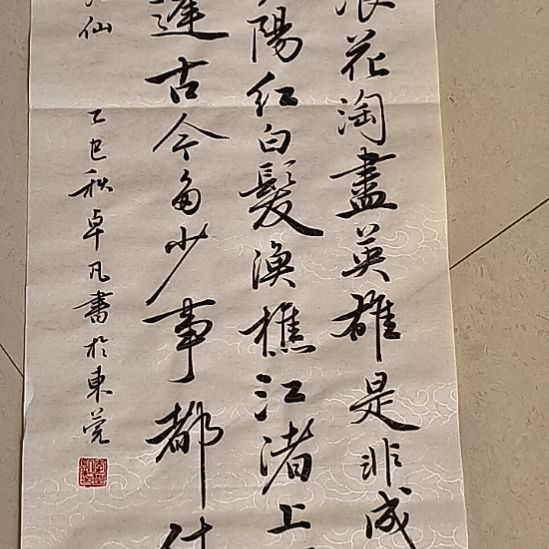 浪花淘盡英雄是非成
陽紅白髮漁樵江渚上
逢古今多少事都付
仙 乙巳秋卓凡書於東莞